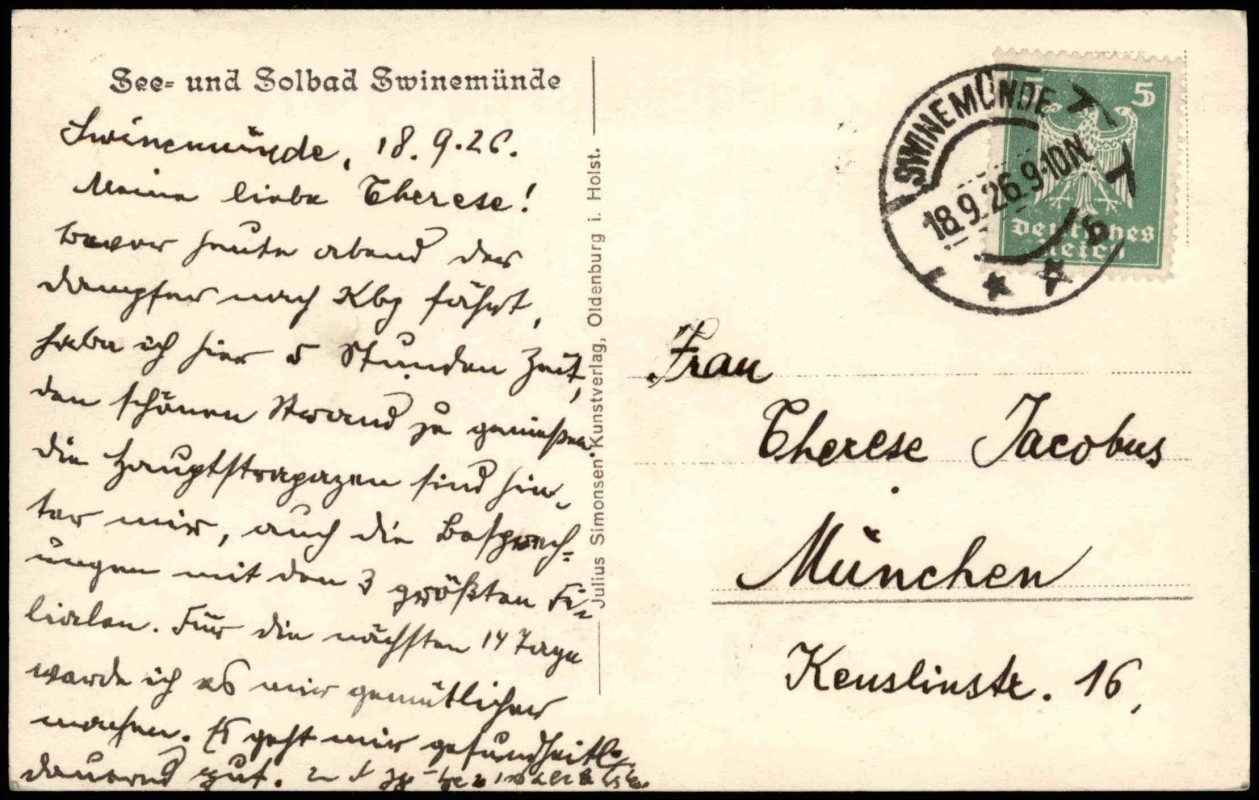 See- und Solbad Swinemünde
Swinemünde, 18.9.26.
Meine liebe Therese!
bevor heute abend der
Dampfer nach Kbg fährt,
habe ich hier 5 Stunden Zeit,
den schönen Strand zu genießen
die Hauptstrapazen sind hin-
ter mir, auch die Besprech-
ungen mit den 3 größten Fi-
lialen. Für die nächsten 14 Tage
werde ich es mir gemütlicher
machen. Es geht mir gesundheitl.
dauernd gut.
Julius Simonsen Kunstverlag, Oldenburg i. Holst.
SWINEMÜNDE
18.9.26.9-10N.
5
Deutsches
Reich
Frau
Therese Jacobus
München
Keuslinstr. 16,